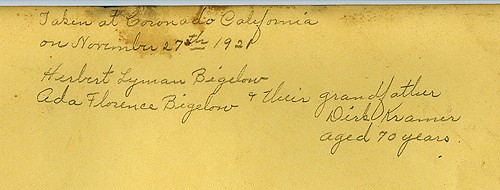 Taken at Coronado California
on November 27th 1921
Herbert Lyman Bigelow
Ada Florence Bigelow & their grandfather
Dirk Kramer
aged 70 years.